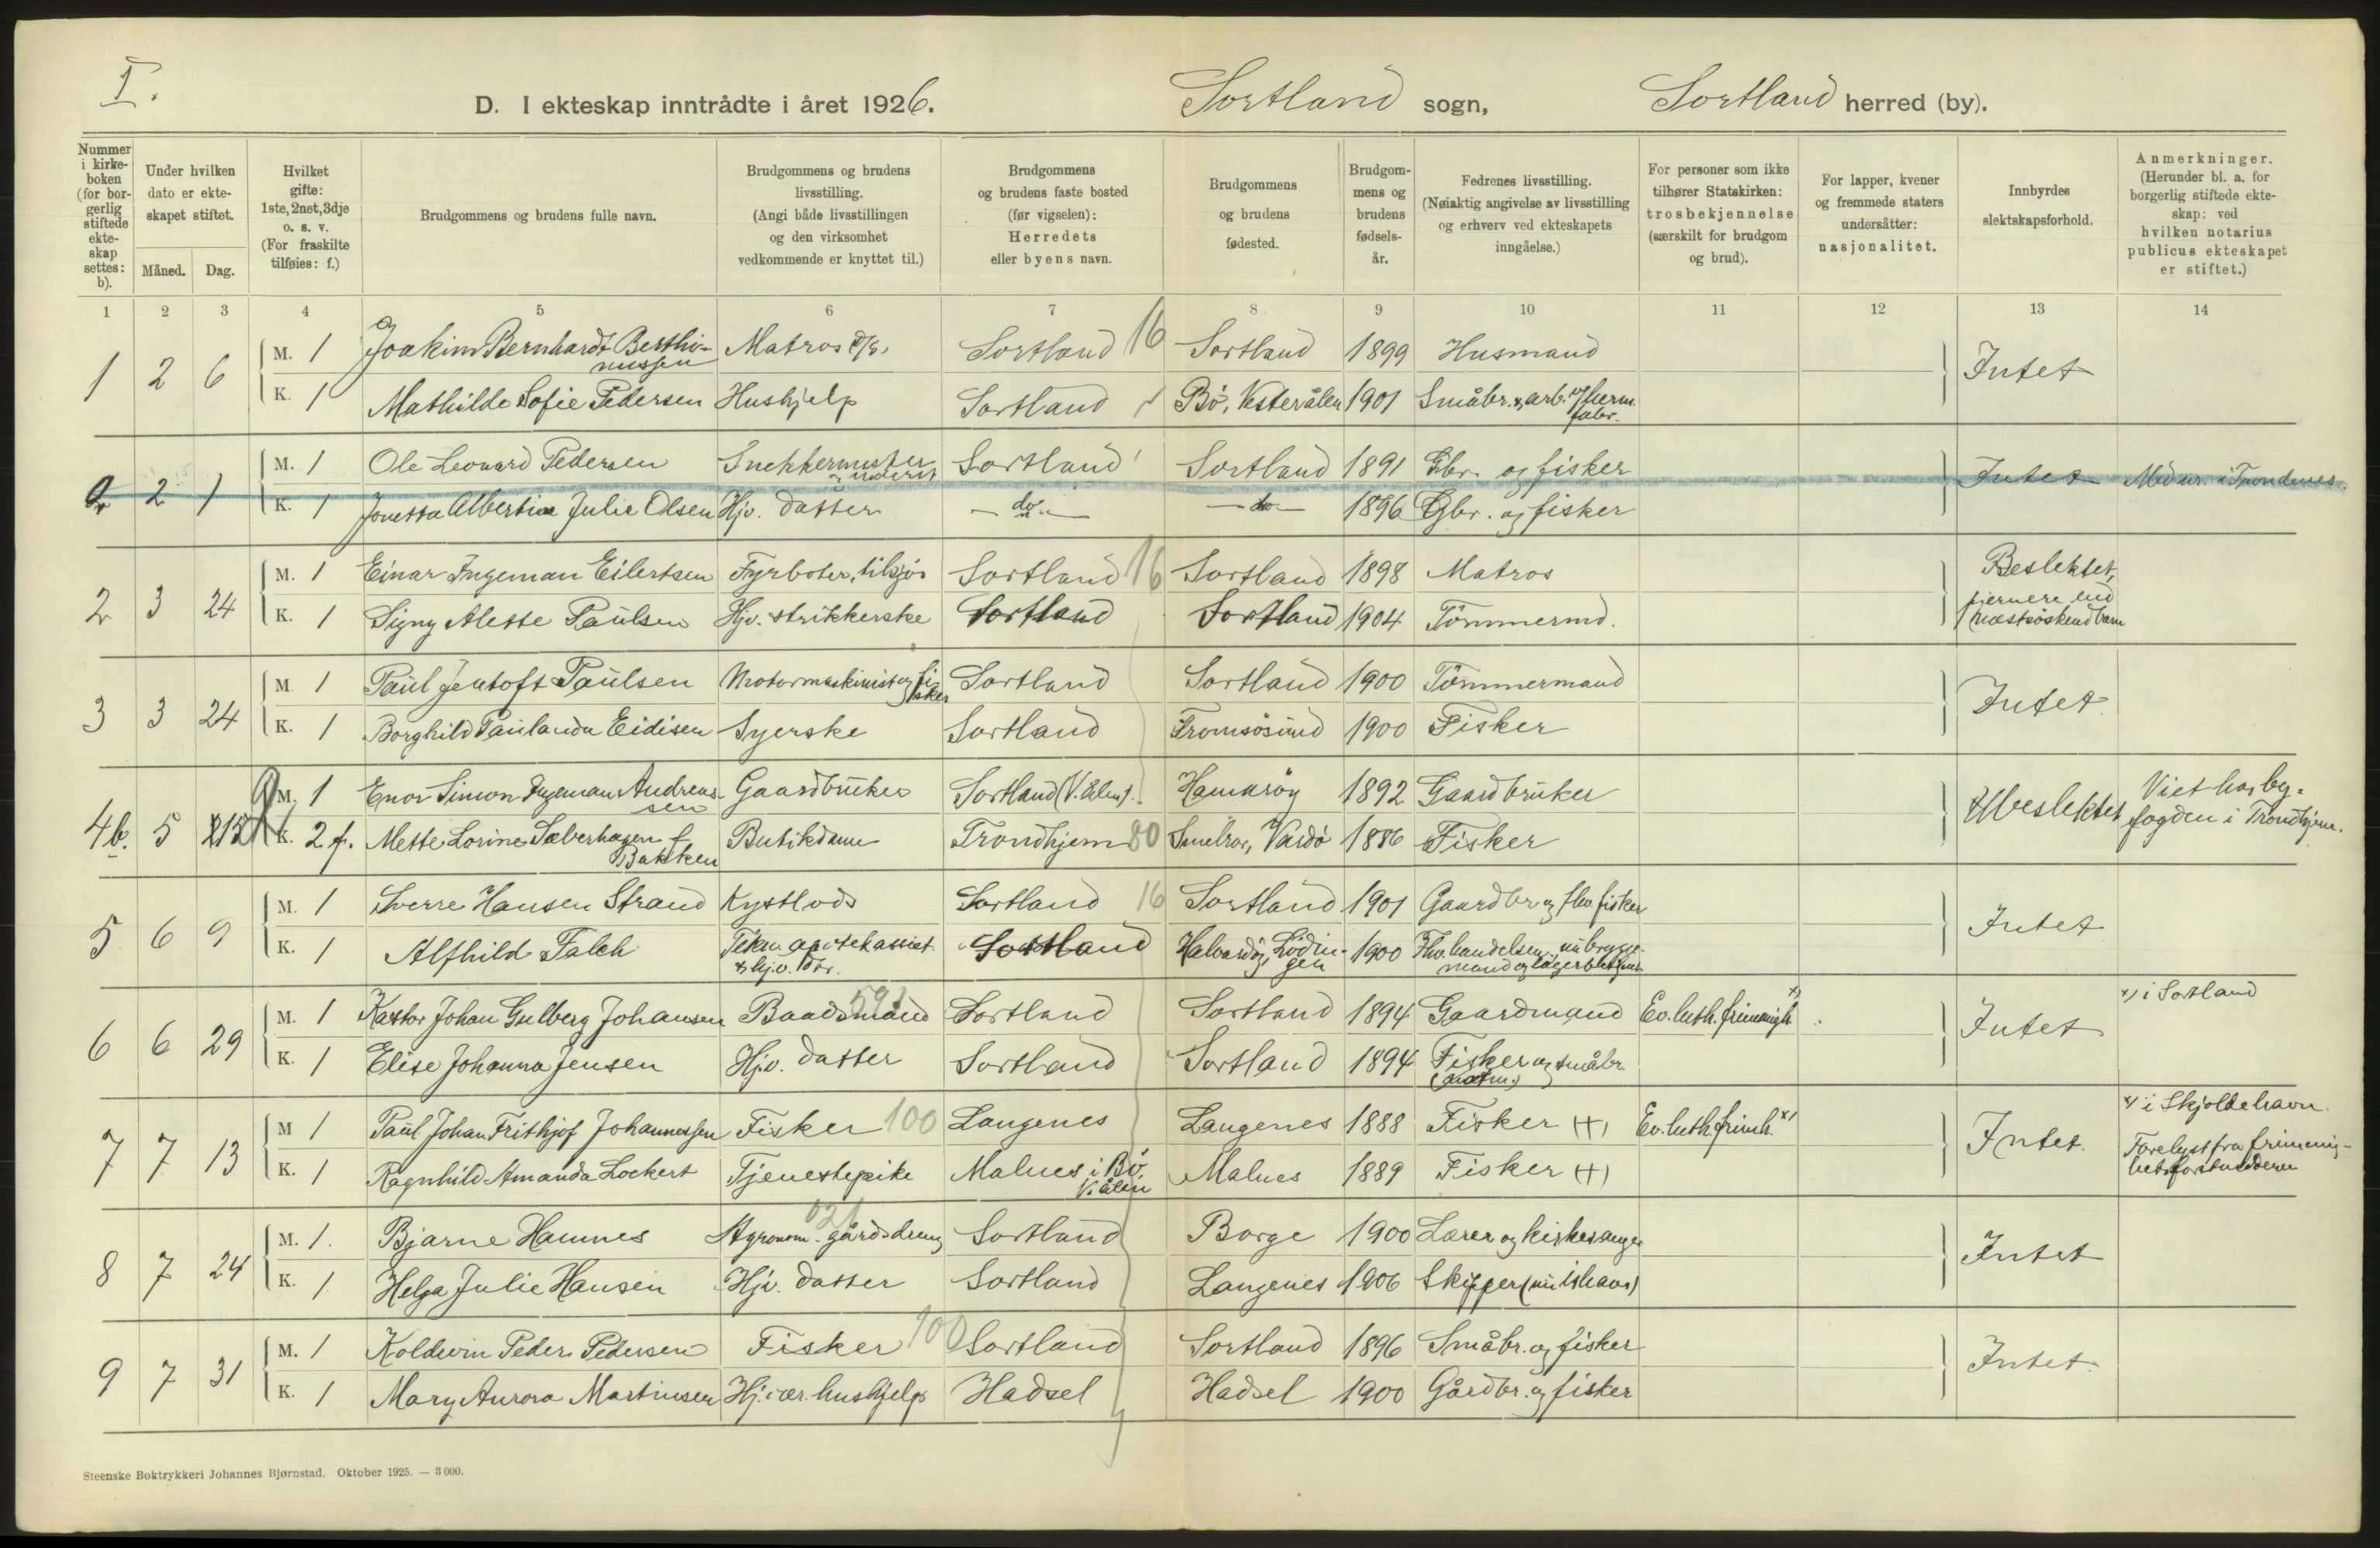 I.
D. I ekteskap inntrådte i året 1926. Sortland sogn, Sortland herred (by).
Nummer i kirke-boken (for bor-gerlig stiftede ekte-skap settes: b).
Under hvilken dato er ekte-skapet stiftet.
Måned. Dag.
Hvilket gifte: 1ste, 2net, 3dje o. s. v. (For fraskilte tilføies: f.)
Brudgommens og brudens fulle navn.
Brudgommens og brudens livsstilling. (Angi både livsstillingen og den virksomhet vedkommende er knyttet til.)
Brudgommens og brudens faste bosted (før vigselen): Herredets eller byens navn.
Brudgommens og brudens fødested.
Brudgom-mens og brudens fødsels-år.
Fedrenes livsstilling. (Nøiaktig angivelse av livsstilling og erhverv ved ekteskapets inngåelse.)
For personer som ikke tilhører Statskirken: trosbekjennelse (særskilt for brudgom og brud).
For lapper, kvener og fremmede staters undersåtter: nasjonalitet.
Innbyrdes slektskapsforhold.
Anmerkninger. (Herunder bl. a. for borgerlig stiftede ekte-skap: ved hvilken notarius publicus ekteskapet er stiftet.)
1 2 3 4 5 6 7 8 9 10 11 12 13 14
1 2 6 M. 1 Joakim Bernhardt Berthi-nussen Matros D/S. Sortland 16 Sortland 1899 Husmand Intet
K. 1 Mathilde Sofie Pedersen Hushjelp Sortland Bø, Vesterålen 1901 Småbr. & arb. v/ herm. fabr.
2 2 1 M. 1 Ole Leonard Pedersen Snekkermester Sortland Sortland 1891 Gbr. og fisker Intet Medur. i Trondenes.
K. 1 Jonetta Albertine Julie Olsen Hjv. datter - do - - do - 1896 Gbr. og fisker
2 3 24 M. 1 Einar Ingeman Eilertsen Fyrbøter, tilsjøs Sortland 16 Sortland 1898 Matros Beslektet, fjernere end næstsøskendbarn
K. 1 Signy Alette Paulsen Hjv. strikkerske Sortland Sortland 1904 Tömmermd.
3 3 24 M. 1 Paul Jentoft Paulsen Motormaskinist og fisker Sortland Sortland 1900 Tömmermand Intet
K. 1 Borghild Paulanda Eidisen Syerske Sortland Tromsösund 1900 Fisker
4b. 5 M. 1 Enor Simon Ingeman Andreas-sen Gaardbruker Sortland (V.ålen). Hamarøy 1892 Gaardbruker Ubeslektet Viet hos by-fogden i Trondhjem.
K. 2 f. Mette Lorine Sæberhagen f. Bakken Butikdame Trondhjem 80 Smelror, Vardø 1886 Fisker
5 6 9 M. 1 Sverre Hansen Strand Kystlods Sortland 16 Sortland 1901 Gaardbr og fhv. fisker Intet
K. 1 Alfhild Falch Sortland Halvardøy, Lødin-gen 1900 Fhv. handelsm., nu brygge-mand og lagerbetjent
6 6 29 M. 1 Kastor Johan Gulberg Johansen Baadsmand Sortland Sortland 1894 Gaardmand Ev. luth. frimenigh. x) Intet x) i Sortland
K. 1 Elise Johanna Jensen Hjv. datter Sortland Sortland 1894 Fisker og småbr.
7 7 13 M 1 Paul Johan Frithjof Johannessen Fisker 100 Langenes Langenes 1888 Fisker (+) Ev. luth. frimh. x) Intet. x) i Skjoldehavn. Forelyst fra frimenig-hetsforstanderen
K. 1 Ragnhild Amanda Lockert Tjenestepike Malnes i Bö, V.ålen Malnes 1889 Fisker (+)
8 7 24 M. 1. Bjarne Hamnes Agronom - gårdsdreng Sortland Borge 1900 Lærer og kirkesanger Intet
K. 1 Helga Julie Hansen Hjv. datter Sortland Langenes 1906 Skipper (nu ishavs)
9 7 31 M. 1 Koldevin Peder Pedersen Fisker 100 Sortland Sortland 1896 Småbr. og fisker Intet
K. 1 Mary Aurora Martinsen Hj.v ær. hushjelp Hadsel Hadsel 1900 Gårdbr. og fisker
Steenske Boktrykkeri Johannes Bjørnstad. Oktober 1925. — 3 000.